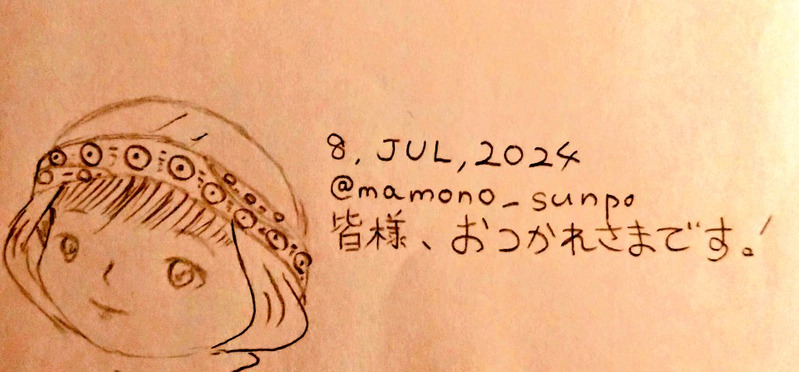 8, JUL, 2024
@mamono_sunpo
皆様、おつかれさまです。!